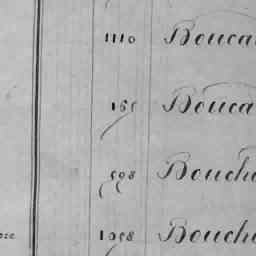 1110 Bouca
165 Bouca
598 Bouch
1058 Bouch